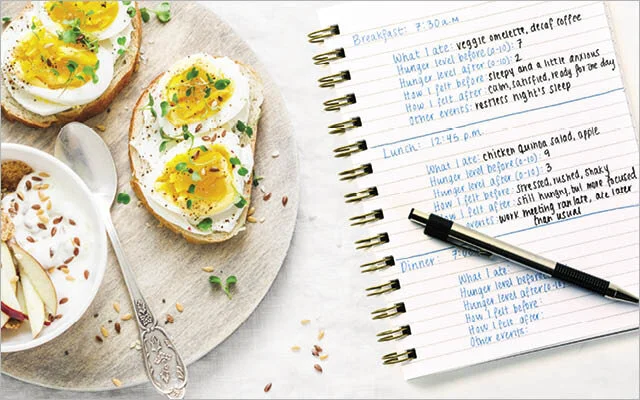 Breakfast: 7:30 a.m
What I ate: veggie omelette, decaf coffee
Hunger level before (0-10): 7
Hunger level after (0-10): 2
How I felt before: sleepy and a little anxious
How I felt after: calm, satisfied, ready for the day
Other events: restless night's sleep
Lunch: 12:45 p.m.
What I ate: chicken quinoa salad, apple
Hunger level before (0-10): 9
Hunger level after (0-10): 3
How I felt before: stressed, rushed, shaky
How I felt after: still hungry, but more focused
events: work meeting ran late, ate later
than usual
Dinner:
What I ate:
Hunger level before (0-10):
Hunger level after (0-10):
How I felt before:
How I felt after:
Other events: